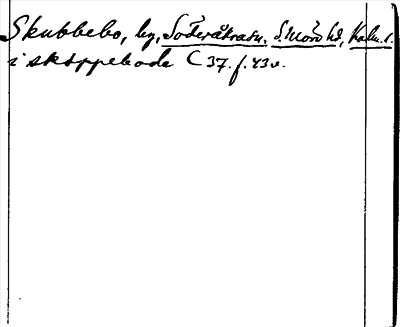 Skubbebo, by, Söderåkra sn. S. Möre hd, Kalm. l.
i skoppeboda C 37. f. 43 v.